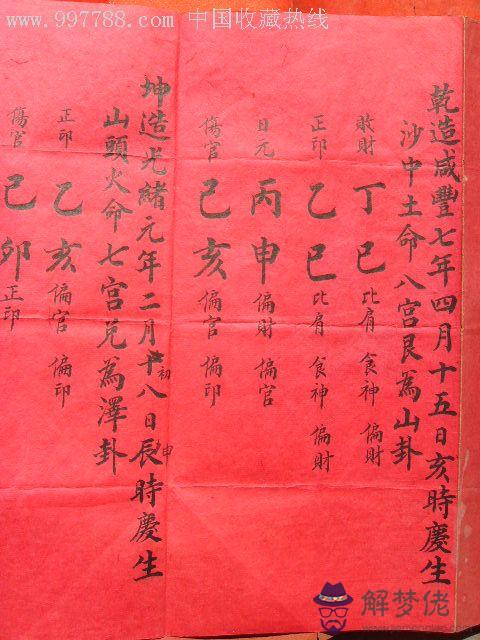 www.997788.com 中国收藏热线
乾造咸豐七年四月十五日亥時慶生
沙中土命八宫艮為山卦
敗財
丁巳
比肩 食神 偏財
正印
乙巳
比肩 食神 偏財
日元
丙申
偏財 偏官
傷官
己亥
偏官 偏印
坤造光緒元年二月十八日辰時慶生
初
申
山頭火命七宫兌為澤卦
正印
乙亥
偏官 偏印
傷官
己卯
正印
解梦佬
jiemenglao.com